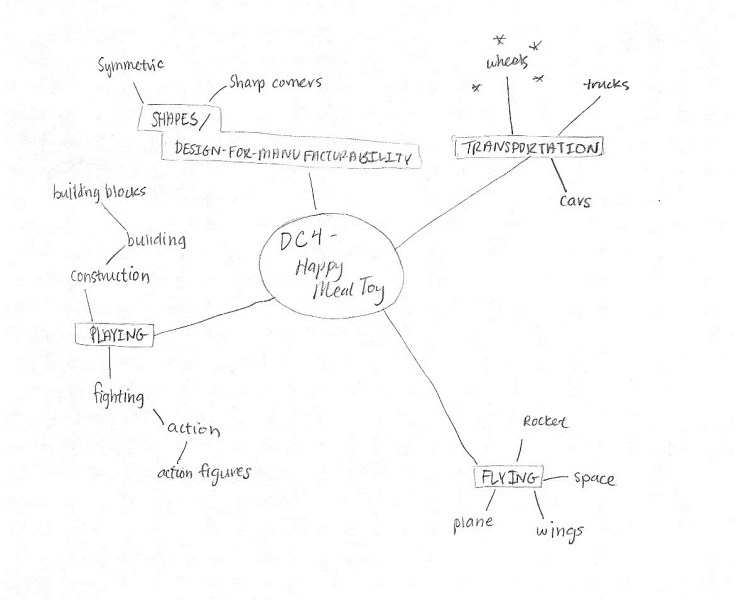 Symmetric
Sharp corners
SHAPES/
DESIGN-FOR-MANUFACTURABILITY
wheels
trucks
TRANSPORTATION
cars
building blocks
building
construction
PLAYING
fighting
action
action figures
DC4-
Happy
Meal Toy
Rocket
FLYING
space
plane
wings